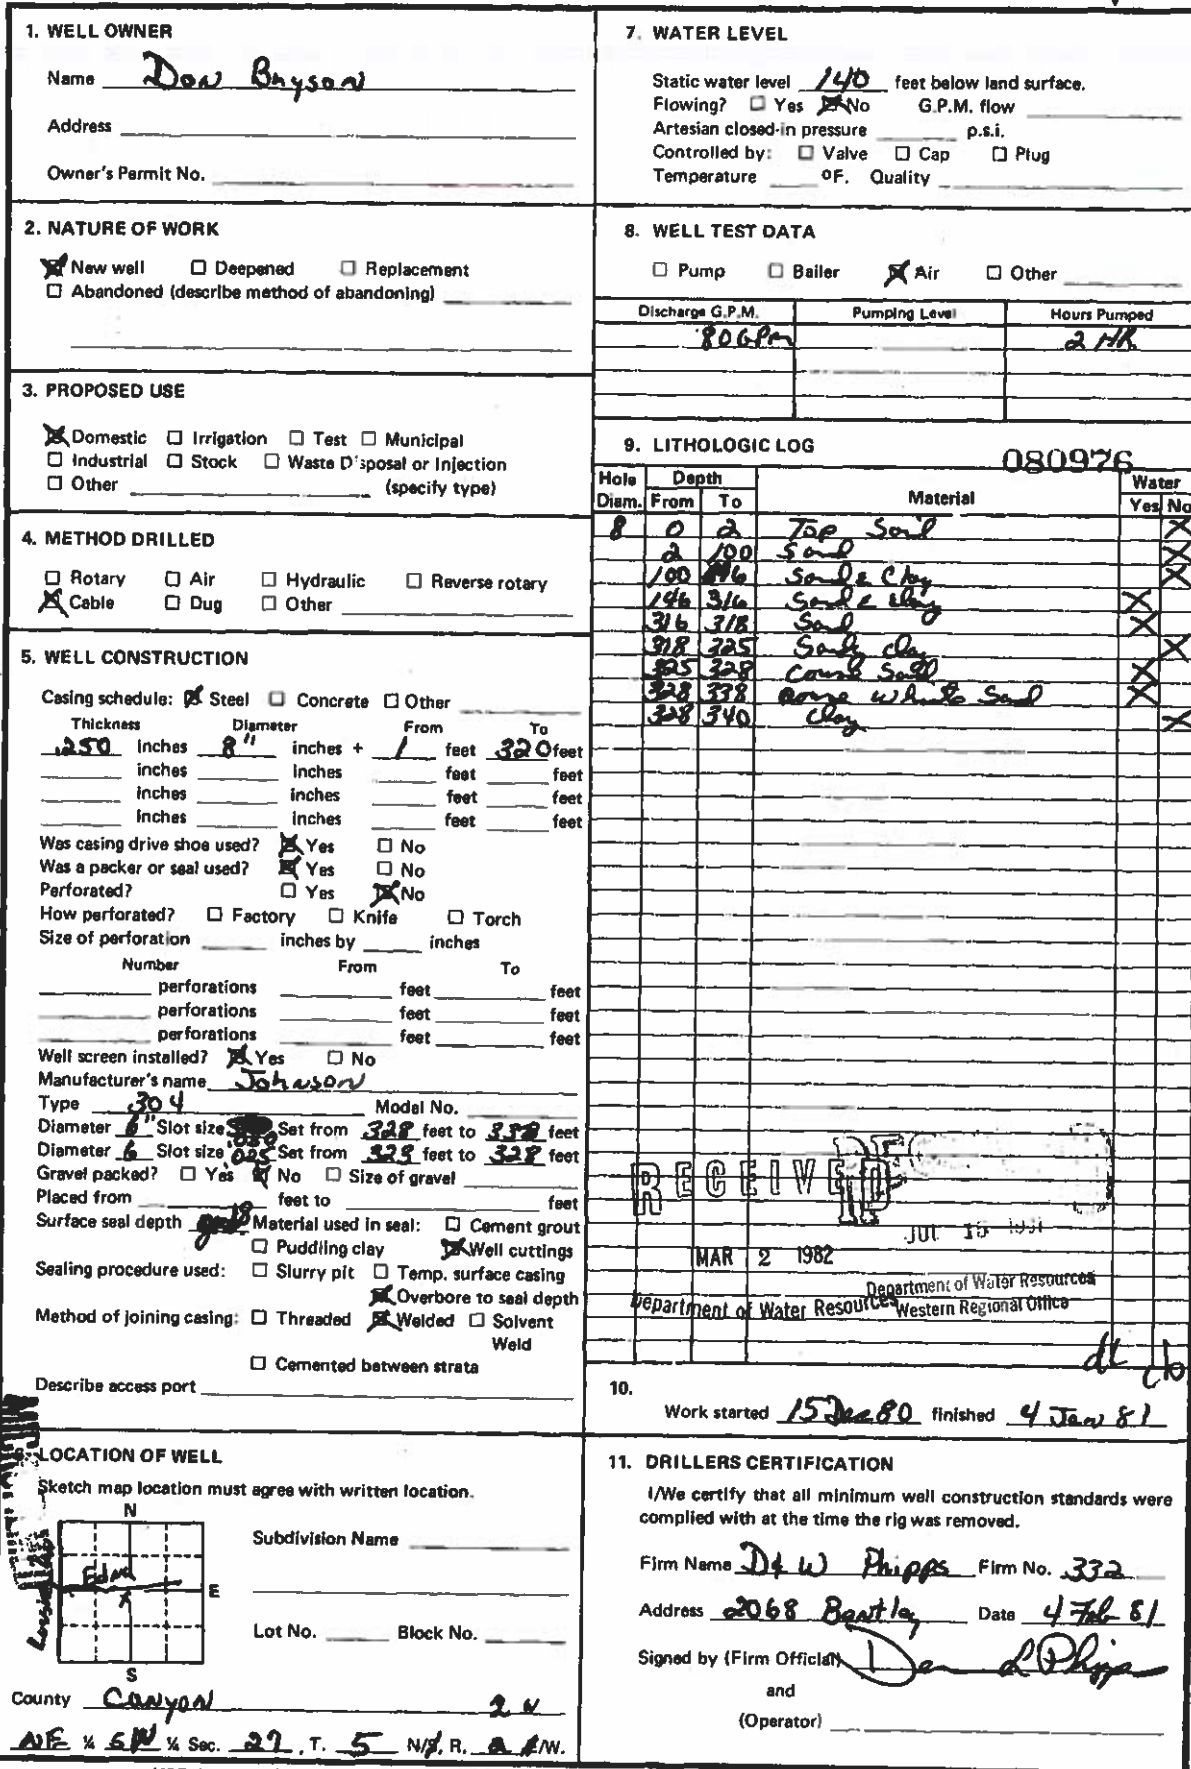 1. WELL OWNER
Name Don Bryson
Address
Owner's Permit No.
2. NATURE OF WORK
New well Deepened Replacement
Abandoned (describe method of abandoning)
3. PROPOSED USE
Domestic Irrigation Test Municipal
Industrial Stock Waste Disposal or Injection
Other (specify type)
4. METHOD DRILLED
Rotary Air Hydraulic Reverse rotary
Cable Dug Other
5. WELL CONSTRUCTION
Casing schedule: Steel Concrete Other
Thickness Diameter From To
.250 inches 8" inches + 1 feet 320 feet
inches inches feet feet
inches inches feet feet
inches inches feet feet
Was casing drive shoe used? Yes No
Was a packer or seal used? Yes No
Perforated? Yes No
How perforated? Factory Knife Torch
Size of perforation inches by inches
Number From To
perforations feet feet
perforations feet feet
perforations feet feet
Well screen installed? Yes No
Manufacturer's name Johnson
Type 304 Model No.
Diameter 6" Slot size Set from 328 feet to 338 feet
Diameter 6 Slot size .025 Set from 323 feet to 328 feet
Gravel packed? Yes No Size of gravel
Placed from feet to feet
Surface seal depth 18 Material used in seal: Cement grout
Puddling clay Well cuttings
Sealing procedure used: Slurry pit Temp. surface casing
Overbore to seal depth
Method of joining casing: Threaded Welded Solvent
Weld
Cemented between strata
Describe access port
LOCATION OF WELL
Sketch map location must agree with written location.
N
Subdivision Name
E
Lot No. Block No.
S
County Canyon 2 W
NE ¼ SW ¼ Sec. 27, T. 5 N/S, R. 2 E/W.
7. WATER LEVEL
Static water level 140 feet below land surface.
Flowing? Yes No G.P.M. flow
Artesian closed-in pressure p.s.i.
Controlled by: Valve Cap Plug
Temperature ºF. Quality
8. WELL TEST DATA
Pump Bailer Air Other
Discharge G.P.M. Pumping Level Hours Pumped
80 GPM 2 HR
9. LITHOLOGIC LOG 080976
Hole Diam. Depth From To Material Water Yes No
8 0 2 Top Soil X
2 100 Sand X
100 146 Sand & Clay X
146 316 Sand & clay X
316 318 Sand X
318 325 Sandy clay X
325 328 Course Sand X
328 338 Corse White Sand X
328 340 Clay X
RECEIVED
JUL 15 1981
MAR 2 1982
Department of Water Resources
Western Regional Office
Department of Water Resources
10.
Work started 15 Dec 80 finished 4 Jan 81
11. DRILLERS CERTIFICATION
I/We certify that all minimum well construction standards were
complied with at the time the rig was removed.
Firm Name D & W Phipps Firm No. 332
Address 2068 Bentley Date 4 Feb 81
Signed by (Firm Official)
and
(Operator)